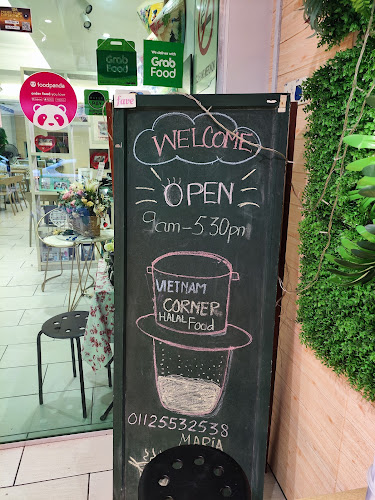 foodpanda
order food you love
We deliver with
Grab
Food
Grab
Food
WELCOME
OPEN
9am-5.30pm
VIETNAM
CORNER
HALAL Food
01125532538
MARIA